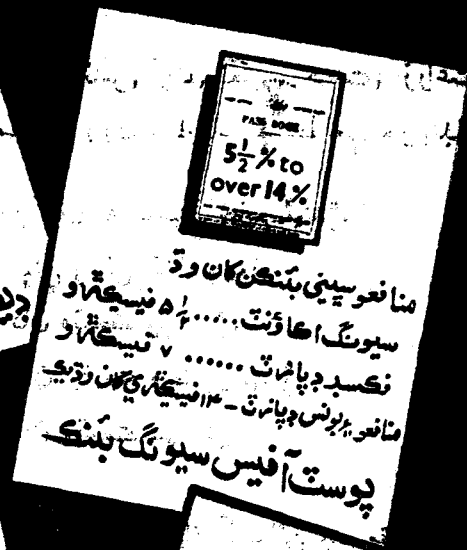 PASS BOOK
5½% to
over 14%
منافعو سڀني بئنڪن کان وڌ
سيونگ اڪائونٽ..... ۵ ۱/۲ فيسيڪڙو
فڪسڊ ڊپازٽ ...... ۷ فيسيڪڙو
منافعو ۽ بونس ڊپازٽ - ۱۴ فيسيڪڙي کان وڌيڪ
پوسٽ آفيس سيونگ بئنڪ